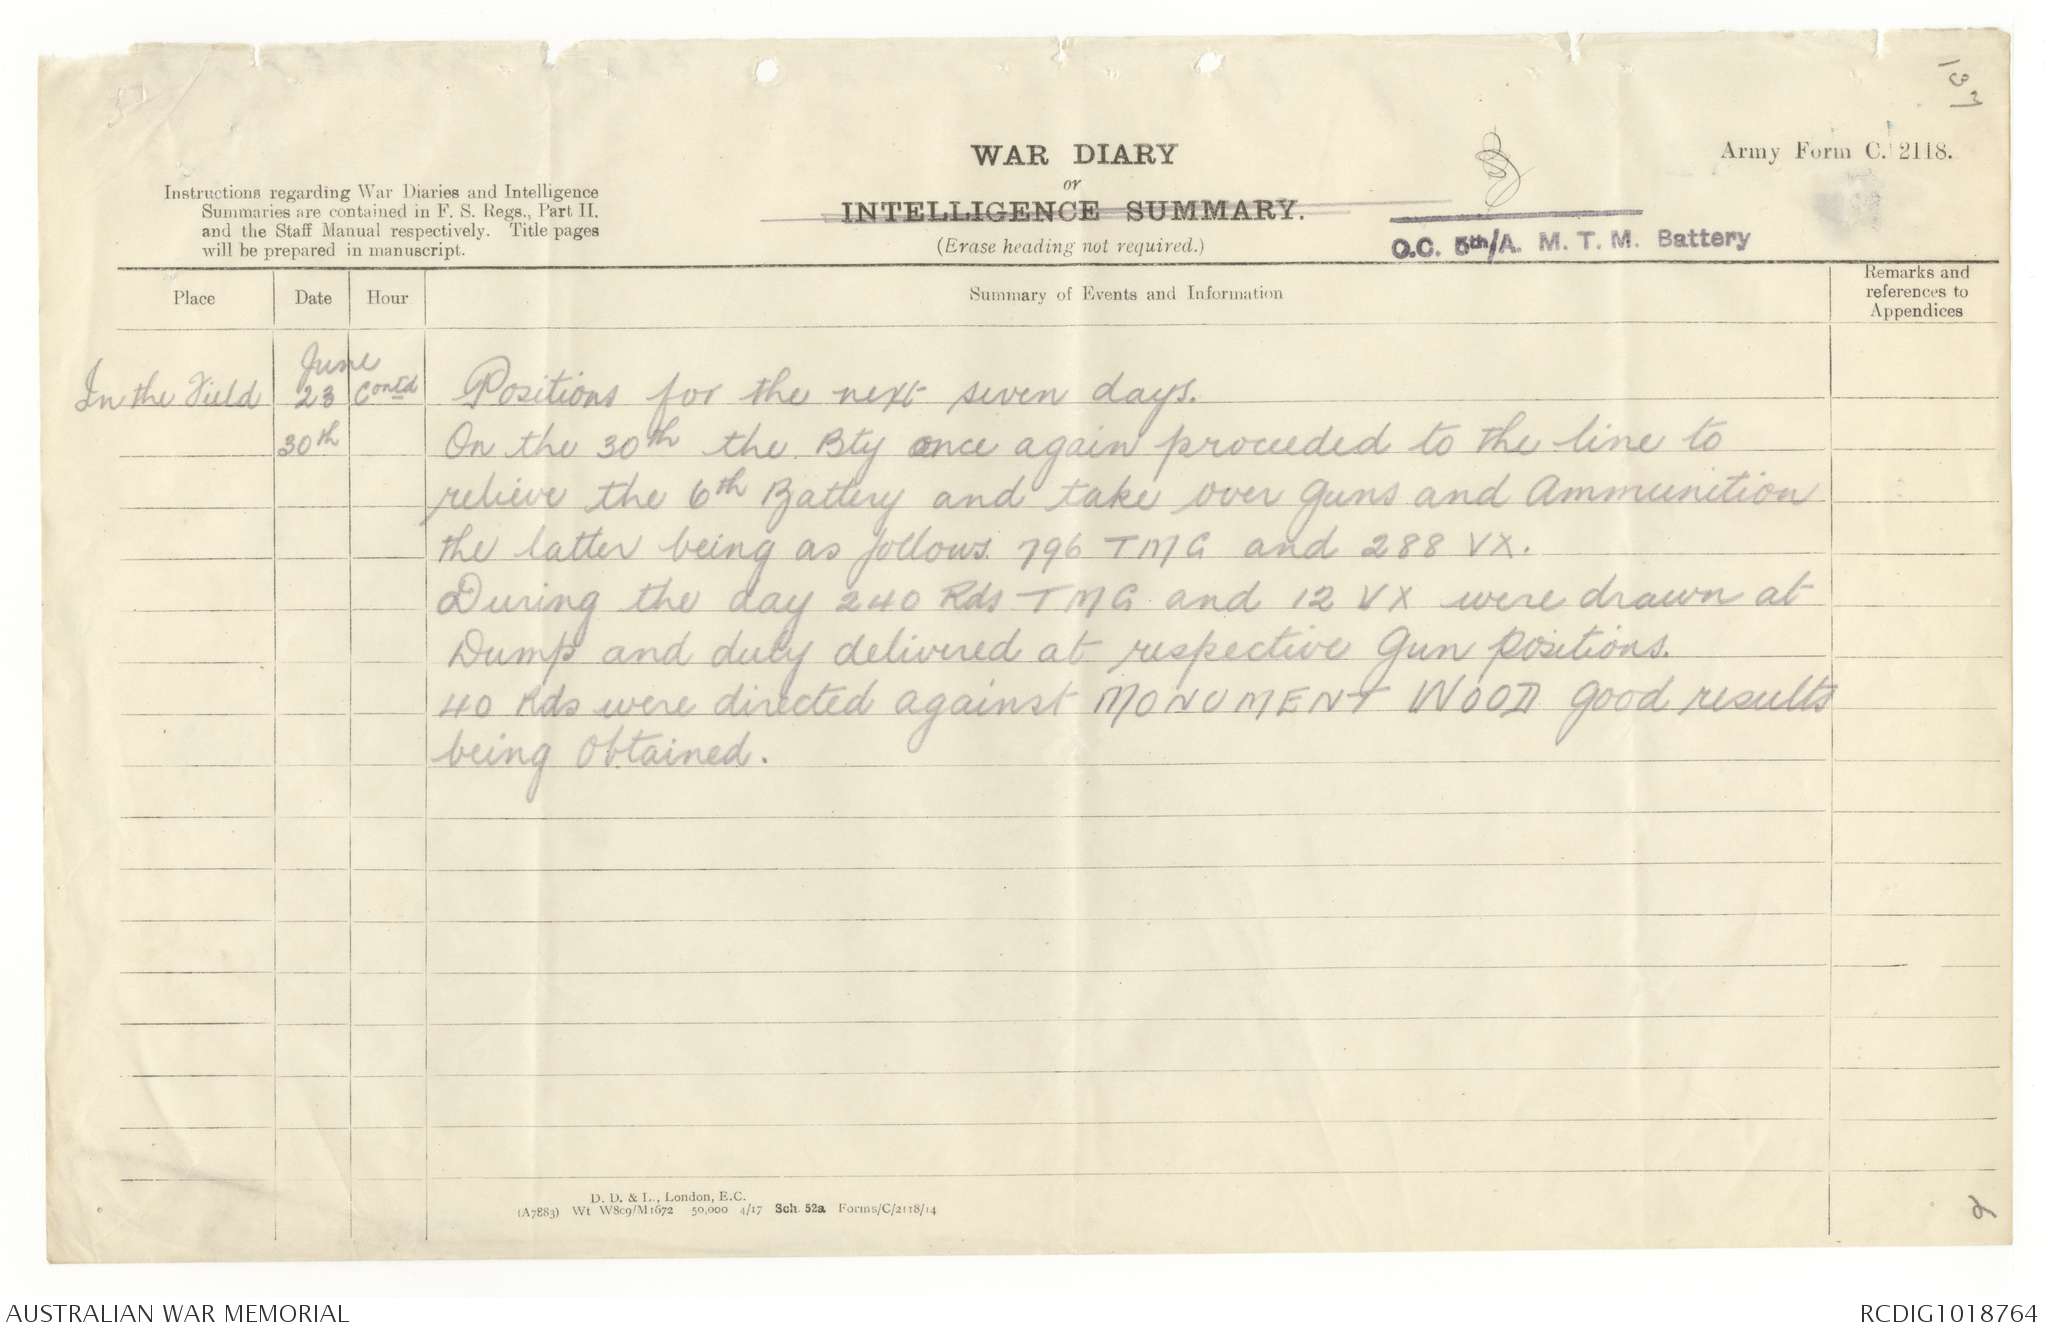 133
WAR DIARY
or
INTELLIGENCE SUMMARY.
(Erase heading not required.)
Army Form C. 2118.
Instructions regarding War Diaries and Intelligence
Summaries are contained in F. S. Regs., Part II.
and the Staff Manual respectively. Title pages
will be prepared in manuscript.
O.C. 5th/A. M. T. M. Battery
Place Date Hour Summary of Events and Information Remarks and references to Appendices
June
In the Field 23 Contd Positions for the next seven days.
30th On the 30th the Bty once again proceeded to the line to
relieve the 6th Battery and take over guns and Ammunition
the latter being as follows. 796 TMG and 288 VX.
During the day 240 Rds TMG and 12 VX were drawn at
Dump and duly delivered at respective Gun positions.
40 Rds were directed against MONUMENT WOOD good results
being obtained.
D. D. & L., London, E.C.
(A7883) Wt W809/M1672 50,000 4/17 Sch. 52a Forms/C/2118/14
AUSTRALIAN WAR MEMORIAL
RCDIG1018764